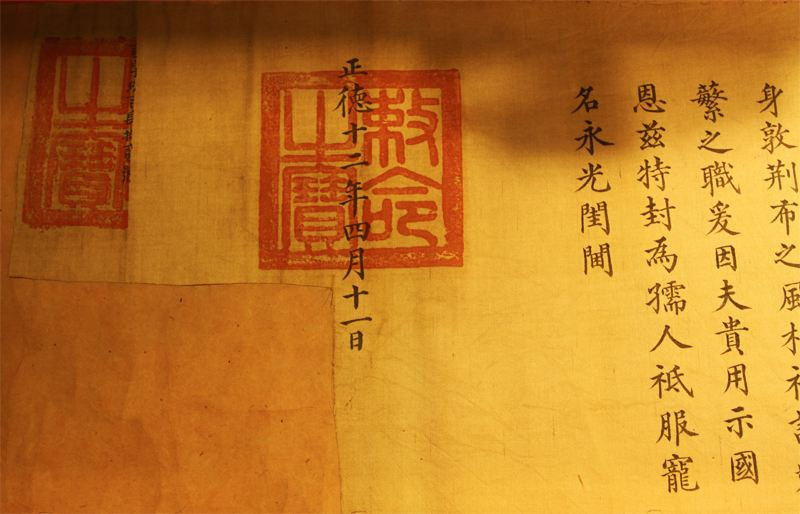 身敦荊布之風
蘩之職爰因夫貴用示國
恩茲特封為孺人祗服寵
名永光閨閫
正德十二年四月十一日
敕命
之寶
之寶